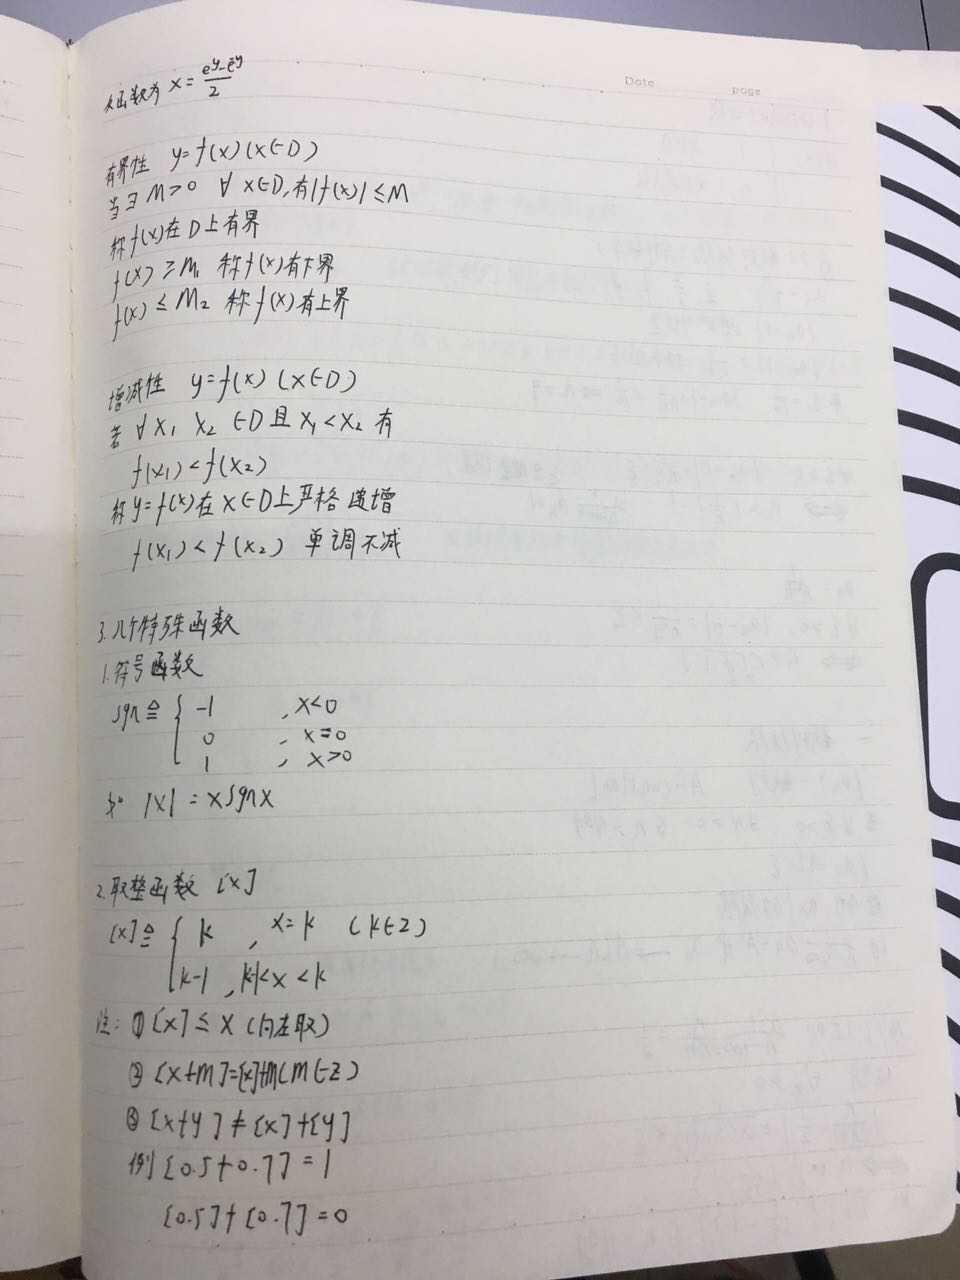 Date
page
反函数为 x = (e^y - e^-y)/2
有界性 y=f(x)(x∈D)
当∃ M>0 ∀ x∈D,有|f(x)|≤M
称f(x)在D上有界
f(x)≥M₁ 称f(x)有下界
f(x)≤M₂ 称f(x)有上界
增减性 y=f(x)(x∈D)
若 ∀x₁ x₂ ∈D且x₁<x₂ 有
f(x₁)<f(x₂)
称y=f(x)在x∈D上严格递增
f(x₁)<f(x₂) 单调不减
3.几个特殊函数
1.符号函数
sgn≜ { -1 , x<0
0 , x=0
1 , x>0
|x|=xsgnx
2.取整函数 [x]
[x]≜ { k , x=k (k∈Z)
k-1 , k-1<x<k
注: ①[x]≤x(向左取)
②[x+m]=[x]+m(m∈Z)
③[x+y]≠[x]+[y]
例[0.5+0.7]=1
[0.5]+[0.7]=0